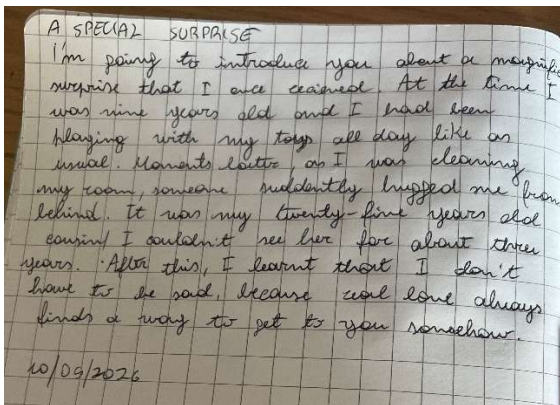 A SPECIAL SURPRISE
I'm going to introduce you about a magnific
surprise that I once received. At the time I
was nine years old and I had been
playing with my toys all day like as
usual. Moments later, as I was cleaning
my room, someone suddently hugged me from
behind. It was my twenty-five years old
cousin! I couldn't see her for about three
years. After this, I learnt that I don't
have to be sad, because real love always
finds a way to get to you somehow.
10/09/2026